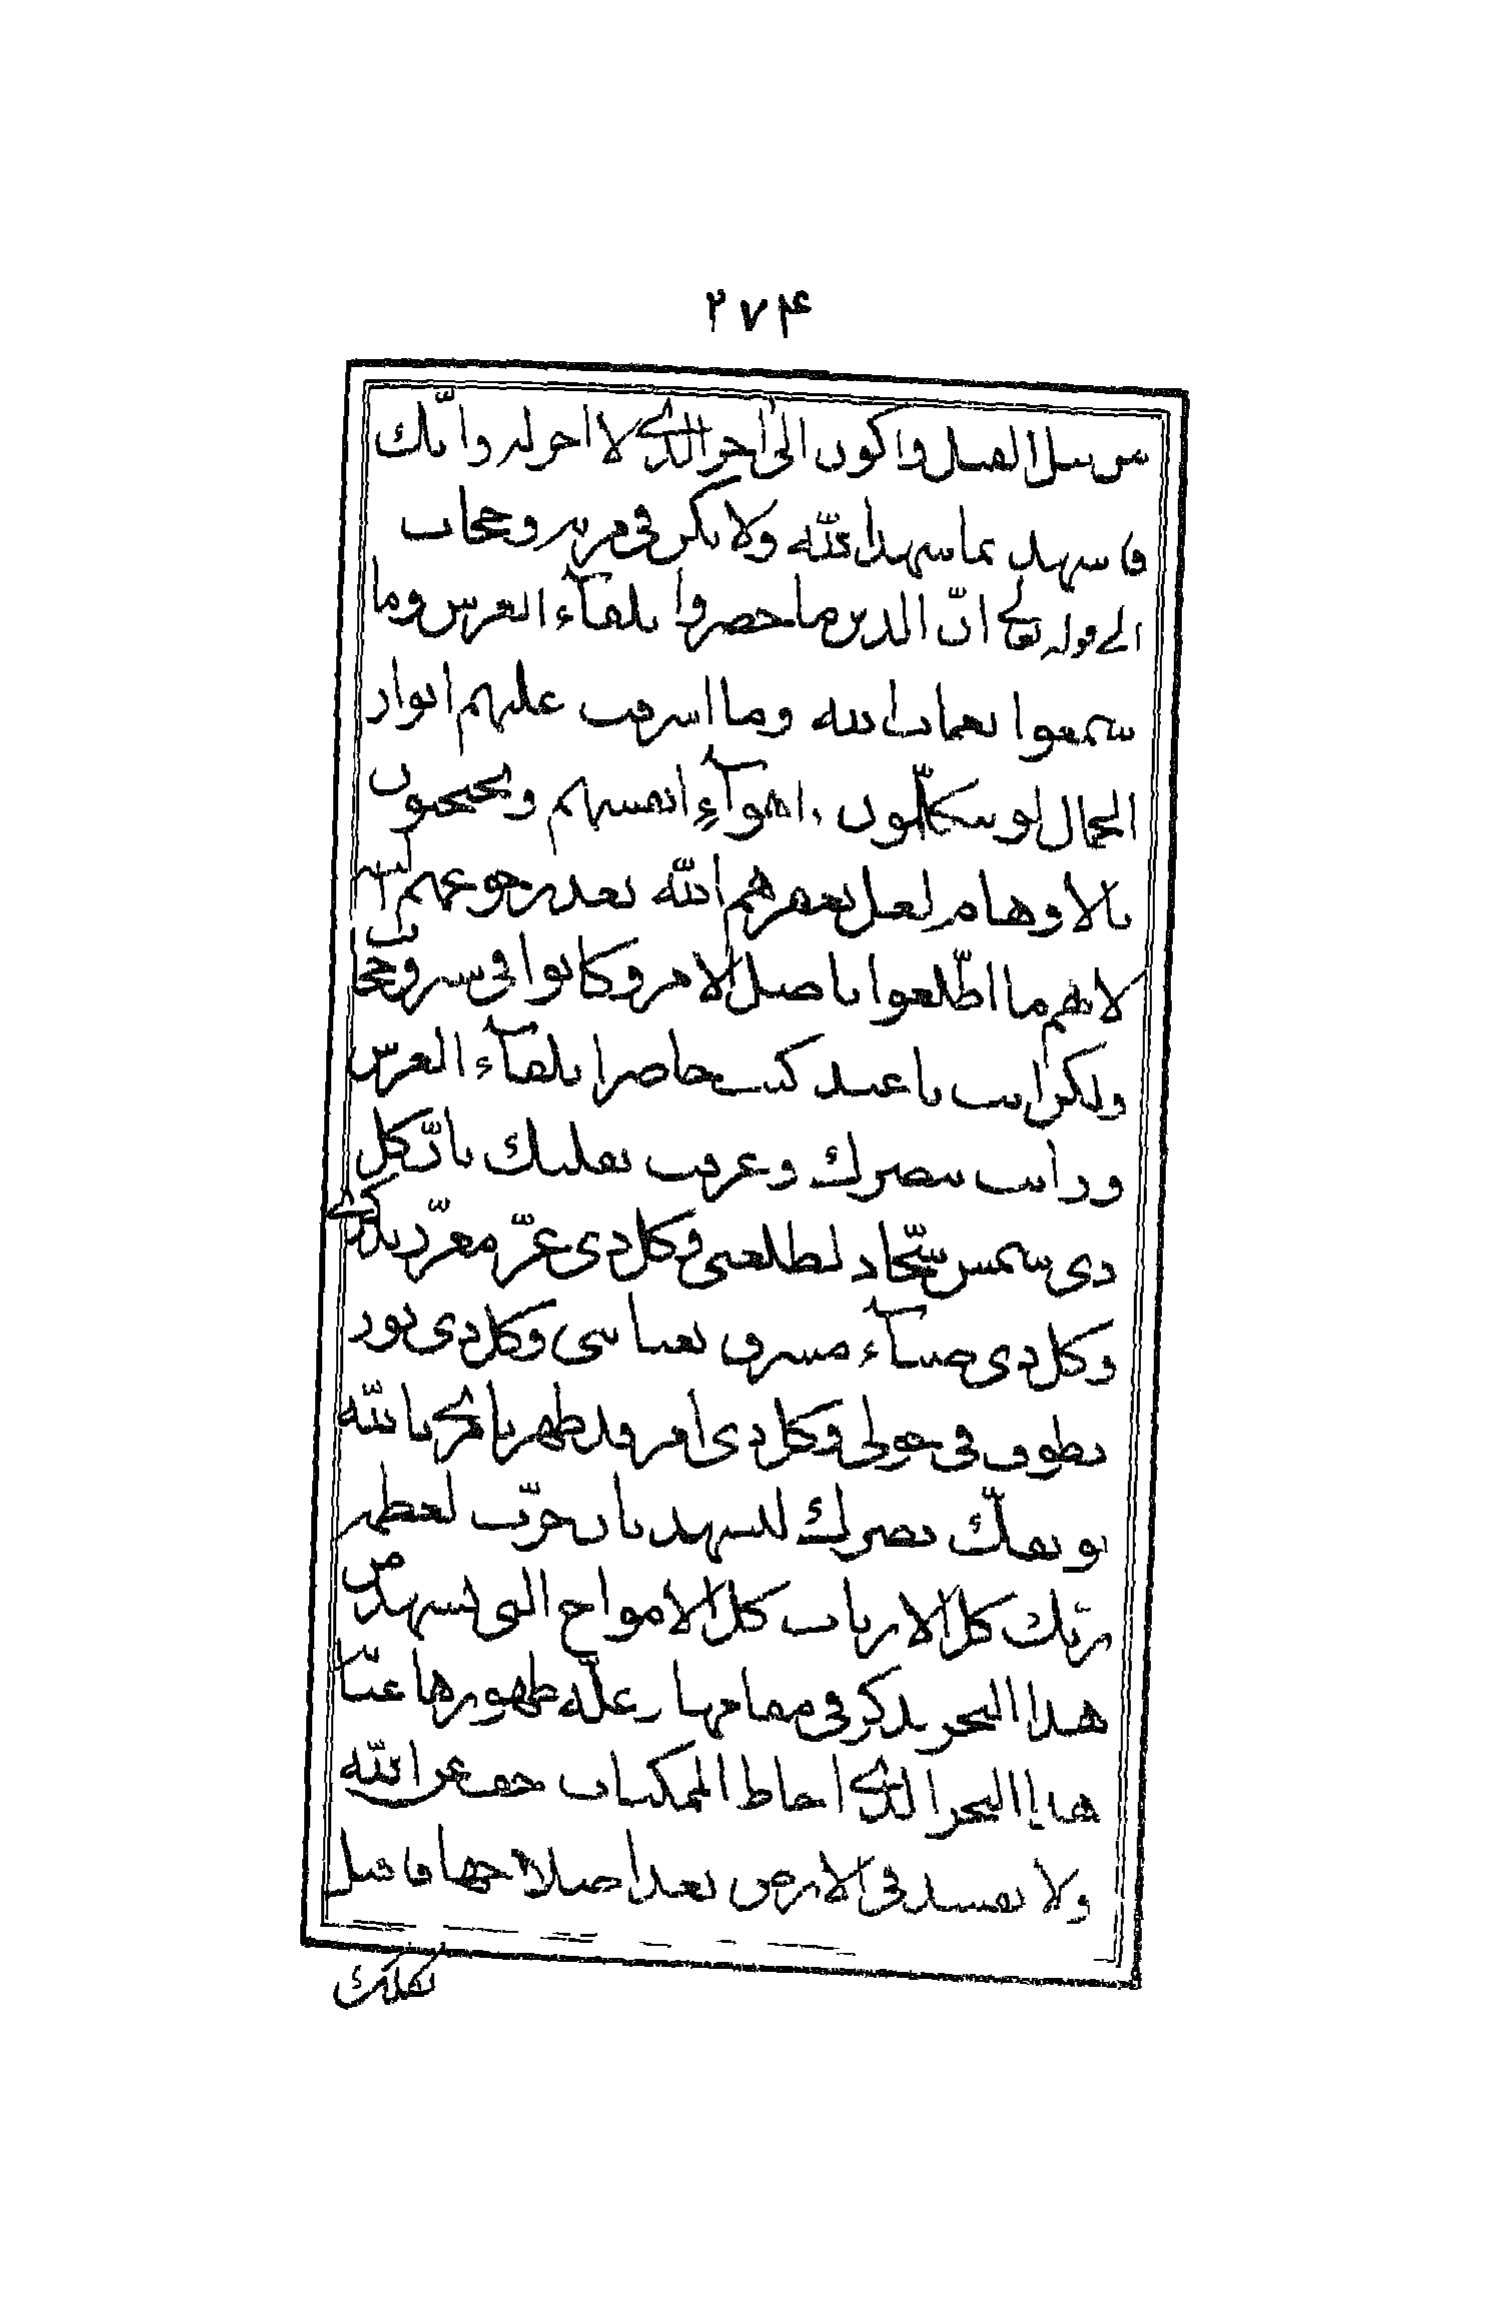 ۲۷۴
من قبل القبل واكون الى آخر الذی لا اخر له وانّك
فاشهد بما شهد اللّه ولا تكن فی مرية وحجاب
الی قوله تعالی انّ الذين ما حضروا تلقآء العرش وما
سمعوا نغمات اللّه وما اشرقت عليهم انوار
الجمال لو يتكلّمون باهوآء انفسهم ويحتجبون
بالاوهام لعل يغفرهم اللّه بعد رجوعهم اليه
لانهم ما اطّلعوا باصل الامر وكانوا فی ستر وحجاب
ولكن انت يا عبد كنت حاضرا تلقآء العرش
ورايت ببصرك وعرفت بقلبك بانّ كل
ذی شمس سجّاد لطلعتی وكل ذی عزّ معزّز بذكری
وكل ذی ضيآء مشرق بعنايتی وكل ذی نور
يطوف فی حولی وكل ذی امر قد ظهر بامری تاللّه
لو يفكّ بصرك لتشهد بان يحرّك لعظمة
ربّك كل الارباب كل الامواج التی تشهد من
هذا البحر يذكر فی مقامها وعلّة ظهورها عنّا
هذا البحر الذی احاط الممكنات خف عن اللّه
ولا تفسد فی الارض بعد اصلاحها فاقبل
بقلبك